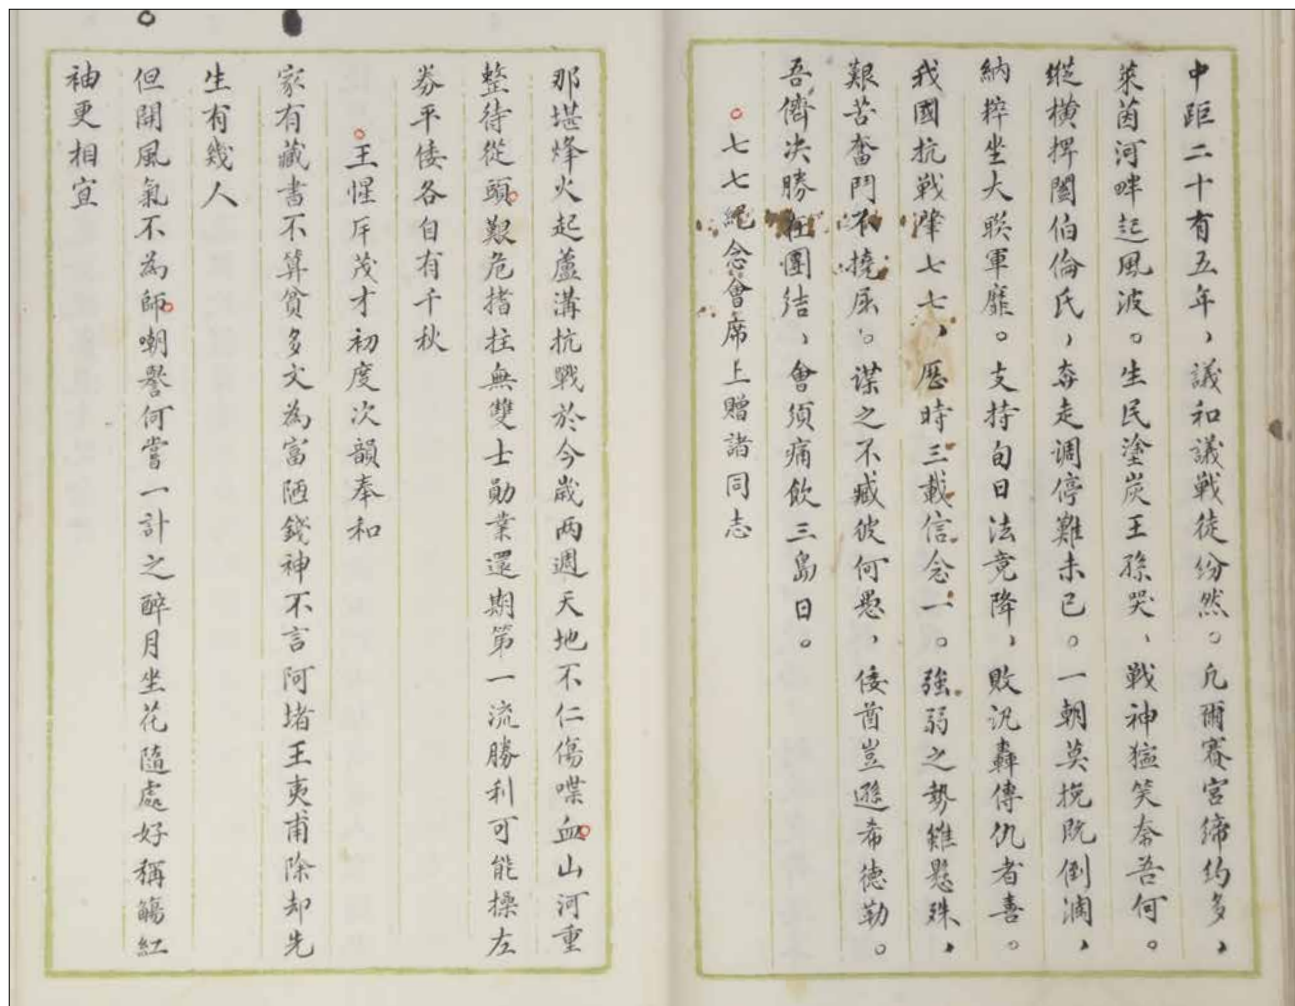 中距二十有五年，議和議戰徒紛然。凡爾賽宮締約多，
萊茵河畔起風波。生民塗炭王孫哭、戰神獰笑奈吾何。
縱橫捭闔伯倫氏，奔走調停難未已。一朝莫挽既倒瀾，
納粹坐大聯軍靡。支持旬日法竟降，敗訊轟傳仇者喜。
我國抗戰肇七七，歷時三載信念一。強弱之勢雖懸殊，
艱苦奮鬥不撓屈。謀之不臧彼何愚，倭酋豈遜希德勒。
吾儕決勝在團結，會須痛飲三島日。
七七紀念會席上贈諸同志
那堪烽火起蘆溝抗戰於今歲两週天地不仁傷喋血山河重
整待從頭艱危搘拄無雙士勛業還期第一流勝利可能操左
券平倭各自有千秋
王惺斥茂才初度次韻奉和
家有藏書不算貧多文為富陋錢神不言阿堵王夷甫除却先
生有幾人
但開風氣不為師嘲譽何嘗一計之醉月坐花隨處好稱觴紅
袖更相宜